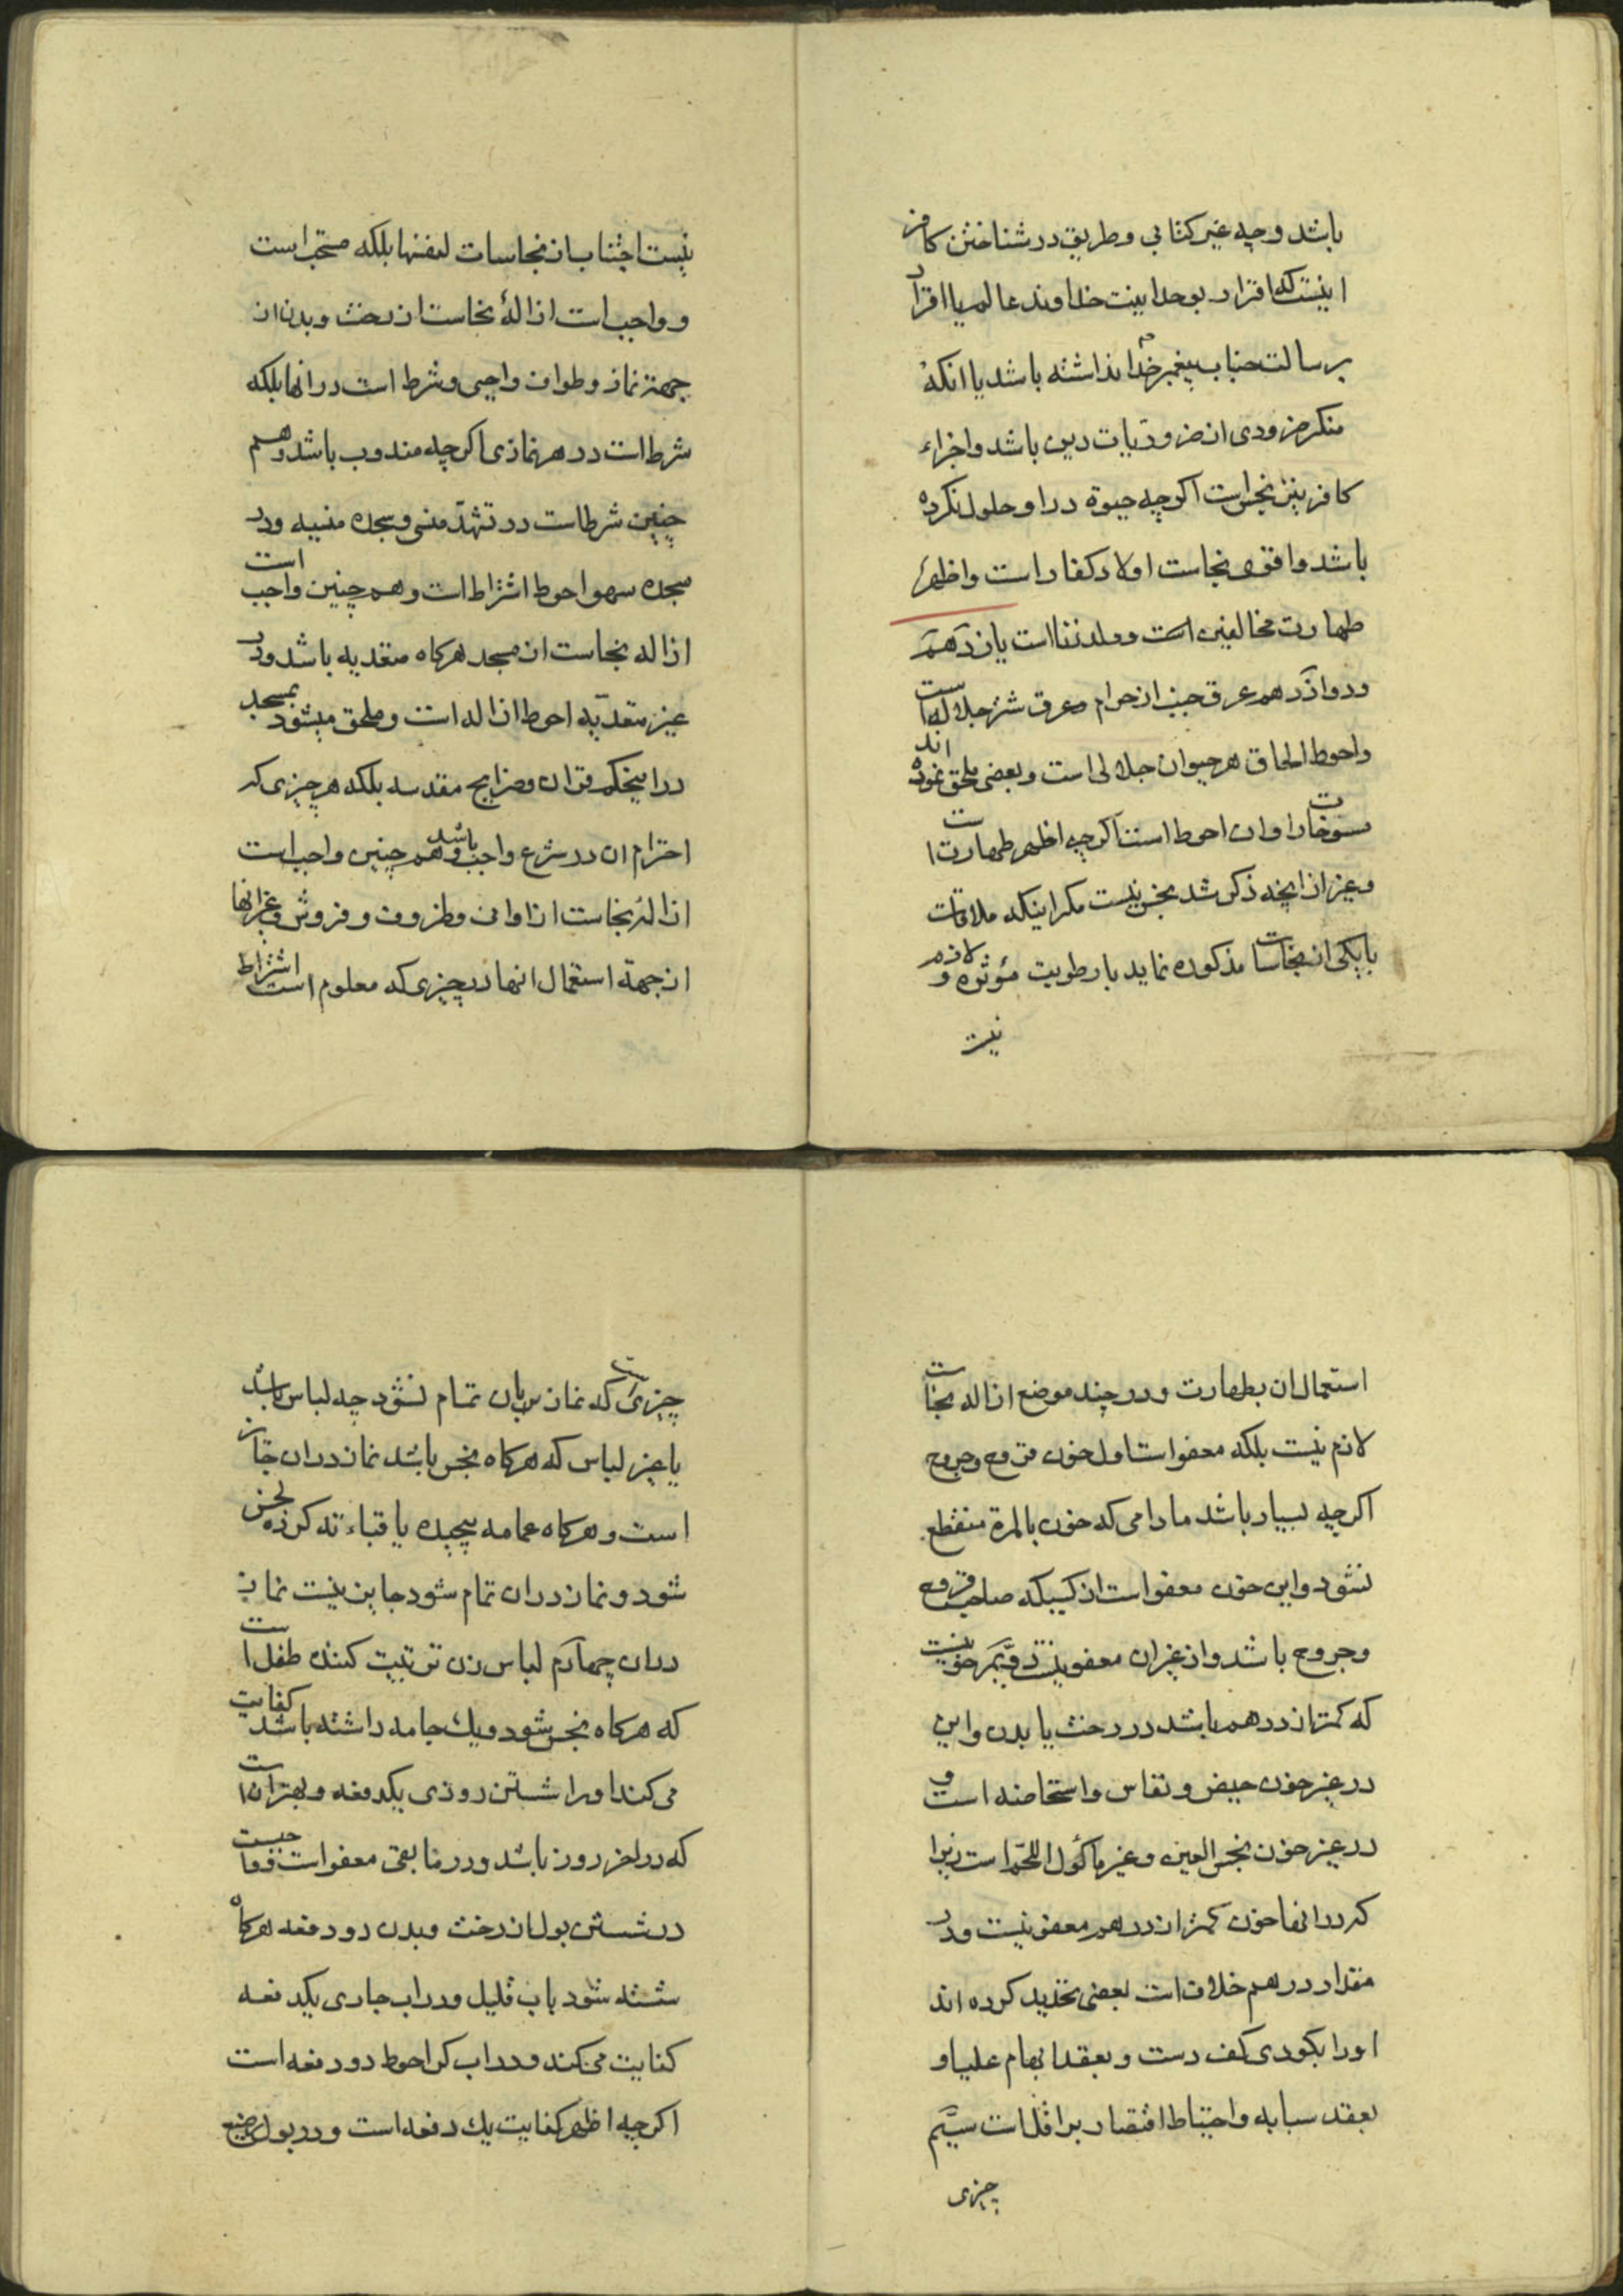 باشد و چه غیر کتابی و طریق در شناختن کافر
اینست که اقرار بوحدانیت خداوند عالم یا اقرار
برسالت جناب پیغمبر خدا نداشته باشد یا انکه
منکر ضروری از ضروریات دین باشد و اجزاء
کافر نیز نجس است اکرچه حیوة در او حلول نکرده
باشد و اقوی نجاست اولاد کفار است و اظهر
طهارت مخالفین است و ولد زنا است یازدهم
و دوازدهم عرق جنب از حرام و عرق شتر جلاله است
و احوط الحاق هر حیوان جلالی است و بعضی ملحق نموده اند
مسوخات را و ان احوط است اکرچه اظهر طهارت است
و غیر از انچه ذکر شد نجس نیست مکر اینکه ملاقات
با یکی از نجاسات مذکوره نماید با رطوبت مؤثره و لازم
نیست
نیست اجتناب از نجاسات لنفسها بلکه مستحب است
و واجب است ازالهٔ نجاست از رخت و بدن از
جهة نماز و طواف واجبی و شرط است در انها بلکه
شرط است در هر نمازی اکرچه مندوب باشد و هم
چنین شرط است در تشهّد منسی و سجده منسیه و در
سجده سهو احوط اشتراط است و هم چنین واجب است
ازاله نجاست از مسجد هرکاه متعدیه باشد و در
غیر متعدیّه احوط ازاله است و ملحق میشود بمسجد
در اینحکم قران و ضرایح مقدسه بلکه هر چیزی که
احترام ان در شرع واجب باشد و هم چنین واجب است
ازالهٔ نجاست از اوانی و ظروف و فروش و غیر انها
از جهة استعمال انها در چیزی که معلوم است اشتراط
استعمال ان بطهارت و در چند موضع ازاله نجاست
لازم نیست بلکه معفو است اول خون قروح و جروح
اکرچه بسیار باشد مادامی که خون بالمرة منقطع
نشود و این خون معفو است از کسیکه صاحب قروح
و جروح باشد و از غیر ان معفو نیست دویّم خونیست
که کمتر از درهم باشد در رخت یا بدن و این
در غیر خون حیض و نفاس و استحاضه است و
در غیر خون نجس العین و غیر ماکول اللحم است زیرا
که در انها خون کمتر از درهم معفو نیست و در
مقدار درهم خلاف است بعضی تحدید کرده اند
او را بکودی کف دست و بعقد ابهام علیا و
بعقد سبابه و احتیاط اقتصار بر اقل است سیّم
چیزی
چیزی است که نماز بان تمام نشود چه لباس باشد
یا غیر لباس که هرکاه نجس باشد نماز در ان جایز
است و هرکاه عمامه پیچیده یا قباء ته کرده نجس
شود و نماز در ان تمام شود جایز نیست نماز
در ان چهارم لباس زن تربیت کننده طفل است
که هرکاه نجس شود و یک جامه داشته باشد کفایت
می کند او را شستن روزی یکدفعه و بهتر ان است
که در اخر روز باشد و در مابقی معفو است
در شستن بول از رخت و بدن دو دفعه هرکاه
شسته شود باب قلیل و در اب جاری یکدفعه
کفایت می کند و در اب کر احوط دو دفعه است
اکرچه اظهر کفایت یک دفعه است و در بول رضیع